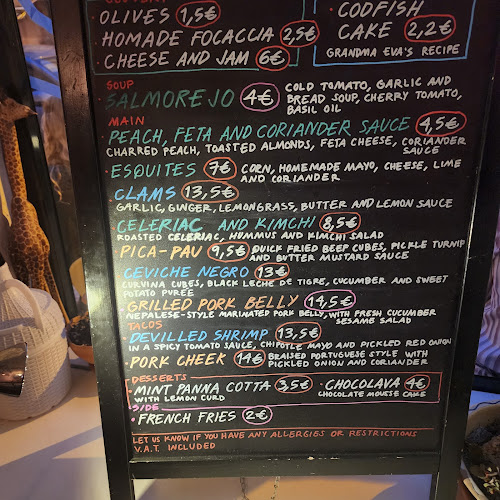 OLIVES 1,5€
HOMADE FOCACCIA 2,5€
CHEESE AND JAM 6€
CODFISH
CAKE 2,2€
GRANDMA EVA'S RECIPE
SOUP
SALMOREJO 4€ COLD TOMATO, GARLIC AND
BREAD SOUP, CHERRY TOMATO,
BASIL OIL
MAIN
PEACH, FETA AND CORIANDER SAUCE 4,5€
CHARRED PEACH, TOASTED ALMONDS, FETA CHEESE, CORIANDER
SAUCE
ESQUITES 7€ CORN, HOMEMADE MAYO, CHEESE, LIME
AND CORIANDER
CLAMS 13,5€
GARLIC, GINGER, LEMONGRASS, BUTTER AND LEMON SAUCE
CELERIAC AND KIMCHI 8,5€
ROASTED CELERIAC, HUMMUS AND KIMCHI SALAD
PICA-PAU 9,5€ QUICK FRIED BEEF CUBES, PICKLE TURNIP
AND BUTTER MUSTARD SAUCE
CEVICHE NEGRO 13€
CURVINA CUBES, BLACK LECHE DE TIGRE, CUCUMBER AND SWEET
POTATO PUREE
GRILLED PORK BELLY 14,5€
NEPALESE-STYLE MARINATED PORK BELLY, WITH FRESH CUCUMBER
SESAME SALAD
TACOS
DEVILLED SHRIMP 13,5€
IN A SPICY TOMATO SAUCE, CHIPOTLE MAYO AND PICKLED RED ONION
PORK CHEEK 14€ BRAISED PORTUGUESE STYLE WITH
PICKLED ONION AND CORIANDER
DESSERTS
MINT PANNA COTTA 3,5€
WITH LEMON CURD
CHOCOLAVA 4€
CHOCOLATE MOUSSE CAKE
SIDE
FRENCH FRIES 2€
LET US KNOW IF YOU HAVE ANY ALLERGIES OR RESTRICTIONS
V.A.T. INCLUDED